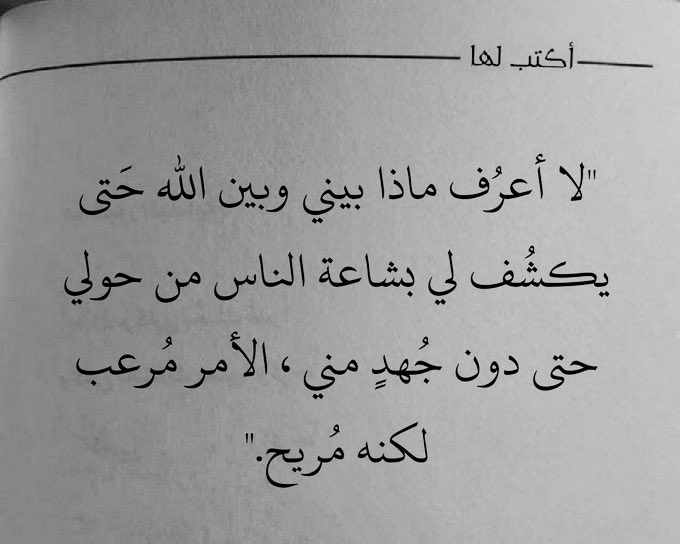 أكتب لها
"لا أعرُف ماذا بيني وبين الله حَتى
يكشُف لي بشاعة الناس من حولي
حتى دون جُهدٍ مني ، الأمر مُرعب
لكنه مُريح."